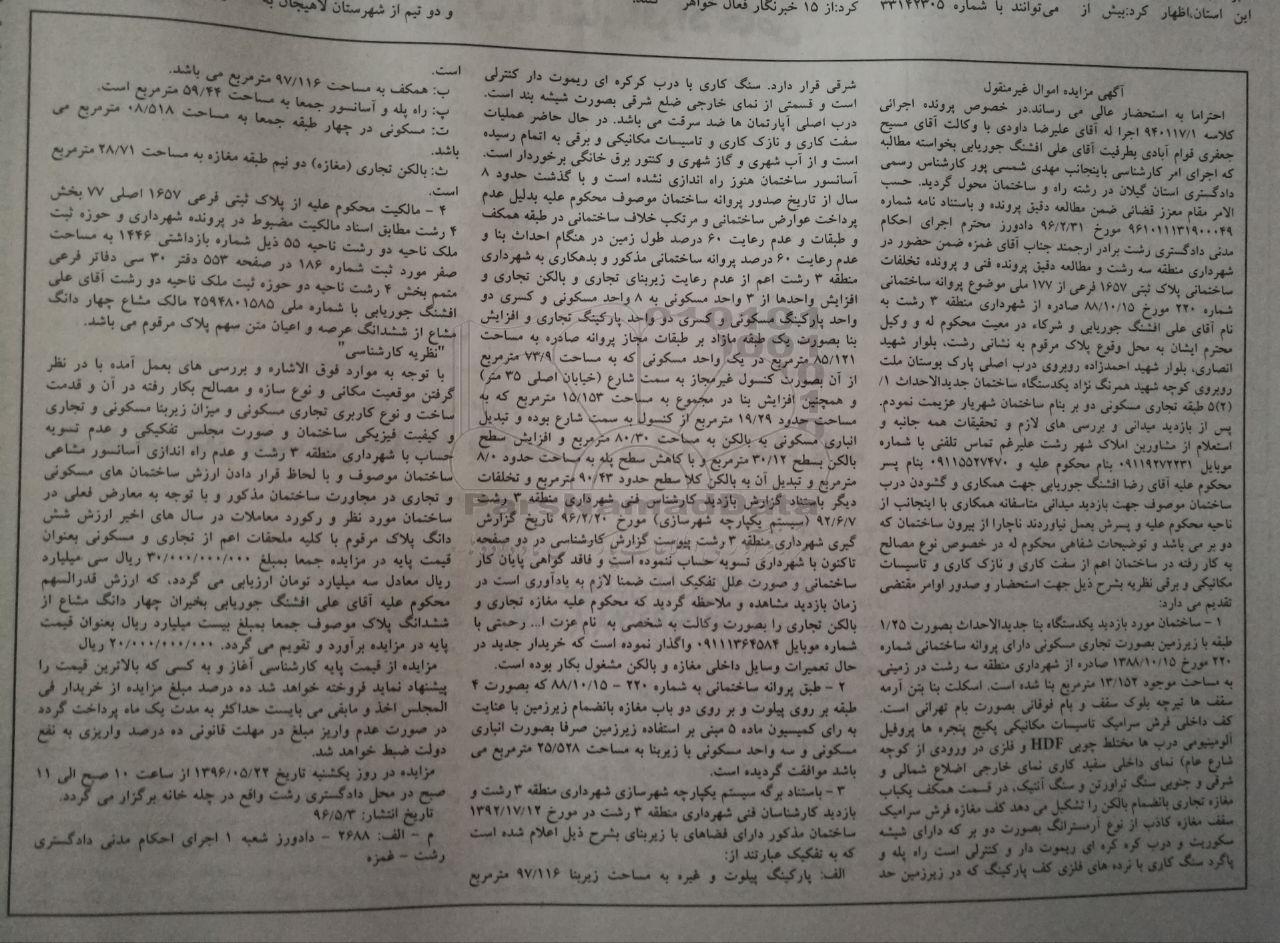 این استان،اظهار کرد:بیش از
می‌توانند با شماره ۳۳۱۴۲۳۰۵
کرد:از ۱۵ خبرنگار فعال خواهر
و دو تیم از شهرستان لاهیجان به
آگهی مزایده اموال غیرمنقول
احتراما به استحضار عالی می رساند.در خصوص پرونده اجرائی
کلاسه ۹۴۰۱۱۷/۱ اجرا له آقای علیرضا داودی با وکالت آقای مسیح
جعفری قوام آبادی بطرفیت آقای علی افشنگ جوریابی بخواسته مطالبه
که اجرای امر کارشناسی باینجانب مهدی شمسی پور کارشناس رسمی
دادگستری استان گیلان در رشته راه و ساختمان محول گردید. حسب
الامر مقام معزز قضائی ضمن مطالعه دقیق پرونده و باستناد نامه شماره
۹۶۱۰۱۱۱۳۱۹۰۰۰۴۹ مورخ ۹۶/۲/۳۱ دادورز محترم اجرای احکام
مدنی دادگستری رشت برادر ارجمند جناب آقای غمزه ضمن حضور در
شهرداری منطقه سه رشت و مطالعه دقیق پرونده فنی و پرونده تخلفات
ساختمانی پلاک ثبتی ۱۶۵۷ فرعی از ۱۷۷ ملی موضوع پروانه ساختمانی
شماره ۲۲۰ مورخ ۸۸/۱۰/۱۵ صادره از شهرداری منطقه ۳ رشت به
نام آقای علی افشنگ جوریابی و شرکاء در معیت محکوم له و وکیل
محترم ایشان به محل وقوع پلاک مرقوم به نشانی رشت، بلوار شهید
انصاری، بلوار شهید احمدزاده روبروی درب اصلی پارک بوستان ملت
روبروی کوچه شهید همرنگ نژاد یکدستگاه ساختمان جدیدالاحداث ۱/
۵(۲) طبقه تجاری مسکونی دو بر بنام ساختمان شهریار عزیمت نمودم.
پس از بازدید میدانی و بررسی های لازم و تحقیقات همه جانبه و
استعلام از مشاورین املاک شهر رشت علیرغم تماس تلفنی با شماره
موبایل ۰۹۱۱۹۲۷۲۲۳۱ بنام محکوم علیه و ۰۹۱۱۵۵۲۷۴۷۰ بنام پسر
محکوم علیه آقای رضا افشنگ جوریابی جهت همکاری و گشودن درب
ساختمان موصوف جهت بازدید میدانی متاسفانه همکاری با اینجانب از
ناحیه محکوم علیه و پسرش بعمل نیاوردند ناچارا از بیرون ساختمان که
دو بر می باشد و توضیحات شفاهی محکوم له در خصوص نوع مصالح
به کار رفته در ساختمان اعم از سفت کاری و نازک کاری و تاسیسات
مکانیکی و برقی نظریه بشرح ذیل جهت استحضار و صدور اوامر مقتضی
تقدیم می دارد:
۱ – ساختمان مورد بازدید یکدستگاه بنا جدیدالاحداث بصورت ۱/۲۵
طبقه با زیرزمین بصورت تجاری مسکونی دارای پروانه ساختمانی شماره
۲۲۰ مورخ ۱۳۸۸/۱۰/۱۵ صادره از شهرداری منطقه سه رشت در زمینی
به مساحت موجود ۱۳/۱۵۲ مترمربع بنا شده است. اسکلت بنا بتن آرمه
سقف ها تیرچه بلوک سقف و بام فوقانی بصورت بام تهرانی است.
کف داخلی فرش سرامیک تاسیسات مکانیکی پکیج پنجره ها پروفیل
آلومینیومی درب ها مختلط چوبی HDF و فلزی در ورودی از کوچه
شارع عام) نمای داخلی سفید کاری نمای خارجی اضلاع شمالی و
شرقی و جنوبی سنگ تراورتن و سنگ آنتیک، در قسمت همکف یکباب
مغازه تجاری بانضمام بالکن را تشکیل می دهد کف مغازه فرش سرامیک
سقف مغازه کاذب از نوع آرمسترانگ بصورت دو بر که دارای شیشه
سکوریت و درب کره کره ای ریموت دار و کنترلی است راه پله و
پاگرد سنگ کاری با نرده های فلزی کف پارکینگ که در زیرزمین حد
شرقی قرار دارد. سنگ کاری با درب کرکره ای ریموت دار کنترلی
است و قسمتی از نمای خارجی ضلع شرقی بصورت شیشه بند است.
درب اصلی آپارتمان ها ضد سرقت می باشد. در حال حاضر عملیات
سفت کاری و نازک کاری و تاسیسات مکانیکی و برقی به اتمام رسیده
است و از آب شهری و گاز شهری و کنتور برق خانگی برخوردار است.
آسانسور ساختمان هنوز راه اندازی نشده است و با گذشت حدود ۸
سال از تاریخ صدور پروانه ساختمان موصوف محکوم علیه بدلیل عدم
پرداخت عوارض ساختمانی و مرتکب خلاف ساختمانی در طبقه همکف
و طبقات و عدم رعایت ۶۰ درصد طول زمین در هنگام احداث بنا و
عدم رعایت ۶۰ درصد پروانه ساختمانی مذکور و بدهکاری به شهرداری
منطقه ۳ رشت اعم از عدم رعایت زیربنای تجاری و بالکن تجاری و
افزایش واحدها از ۳ واحد مسکونی به ۸ واحد مسکونی و کسری دو
واحد پارکینگ مسکونی و کسری دو واحد پارکینگ تجاری و افزایش
بنا بصورت یک طبقه مازاد بر طبقات مجاز پروانه صادره به مساحت
۸۵/۱۲۱ مترمربع در یک واحد مسکونی که به مساحت ۷۳/۹ مترمربع
از آن بصورت کنسول غیرمجاز به سمت شارع (خیابان اصلی ۳۵ متر)
و همچنین افزایش بنا در مجموع به مساحت ۱۵/۱۵۳ مترمربع که به
مساحت حدود ۱۹/۲۹ مترمربع از کنسول به سمت شارع بوده و تبدیل
انباری مسکونی به بالکن به مساحت ۸۰/۳۰ مترمربع و افزایش سطح
بالکن بسطح ۳۰/۱۲ مترمربع و با کاهش سطح پله به مساحت حدود ۸/۰
مترمربع و تبدیل آن به بالکن کلا سطح حدود ۹۰/۴۳ مترمربع و تخلفات
دیگر باستناد گزارش بازدید کارشناس فنی شهرداری منطقه ۳ رشت
۹۲/۶/۷ (سیستم یکپارچه شهرسازی) مورخ ۹۶/۲/۲۰ تاریخ گزارش
گیری شهرداری منطقه ۳ رشت پیوست گزارش کارشناسی در دو صفحه
تاکنون با شهرداری تسویه حساب ننموده است و فاقد گواهی پایان کار
ساختمانی و صورت علل تفکیک است ضمنا لازم به یادآوری است در
زمان بازدید مشاهده و ملاحظه گردید که محکوم علیه مغازه تجاری و
بالکن تجاری را بصورت وکالت به شخصی به نام عزت ا... رحمتی با
شماره موبایل ۰۹۱۱۱۳۶۴۵۸۴ واگذار نموده است که خریدار جدید در
حال تعمیرات وسایل داخلی مغازه و بالکن مشغول بکار بوده است.
۲ – طبق پروانه ساختمانی به شماره ۲۲۰ – ۸۸/۱۰/۱۵ که بصورت ۴
طبقه بر روی پیلوت و بر روی دو باب مغازه بانضمام زیرزمین با عنایت
به رای کمیسیون ماده ۵ مبنی بر استفاده زیرزمین صرفا بصورت انباری
مسکونی و سه واحد مسکونی با زیربنا به مساحت ۲۵/۵۲۸ مترمربع می
باشد موافقت گردیده است.
۳ – باستناد برگه سیستم یکپارچه شهرسازی شهرداری منطقه ۳ رشت و
بازدید کارشناسان فنی شهرداری منطقه ۳ رشت در مورخ ۱۳۹۲/۱۷/۱۲
ساختمان مذکور دارای فضاهای با زیربنای بشرح ذیل اعلام شده است
که به تفکیک عبارتند از:
الف: پارکینگ پیلوت و غیره به مساحت زیربنا ۹۷/۱۱۶ مترمربع
است.
ب: همکف به مساحت ۹۷/۱۱۶ مترمربع می باشد.
پ: راه پله و آسانسور جمعا به مساحت ۵۹/۴۴ مترمربع است.
ت: مسکونی در چهار طبقه جمعا به مساحت ۰۸/۵۱۸ مترمربع می
باشد.
ث: بالکن تجاری (مغازه) دو نیم طبقه مغازه به مساحت ۲۸/۷۱ مترمربع
است.
۴ – مالکیت محکوم علیه از پلاک ثبتی فرعی ۱۶۵۷ اصلی ۷۷ بخش
۴ رشت مطابق اسناد مالکیت مضبوط در پرونده شهرداری و حوزه ثبت
ملک ناحیه دو رشت ناحیه ۵۵ ذیل شماره بازداشتی ۱۴۴۶ به مساحت
صفر مورد ثبت شماره ۱۸۶ در صفحه ۵۵۳ دفتر ۳۰ سی دفاتر فرعی
متمم بخش ۴ رشت ناحیه دو حوزه ثبت ملک ناحیه دو رشت آقای علی
افشنگ جوریابی با شماره ملی ۲۵۹۴۸۰۱۵۸۵ مالک مشاع چهار دانگ
مشاع از ششدانگ عرصه و اعیان متن سهم پلاک مرقوم می باشد.
"نظریه کارشناسی"
با توجه به موارد فوق الاشاره و بررسی های بعمل آمده با در نظر
گرفتن موقعیت مکانی و نوع سازه و مصالح بکار رفته در آن و قدمت
ساخت و نوع کاربری تجاری مسکونی و میزان زیربنا مسکونی و تجاری
و کیفیت فیزیکی ساختمان و صورت مجلس تفکیکی و عدم تسویه
حساب با شهرداری منطقه ۳ رشت و عدم راه اندازی آسانسور مشاعی
ساختمان موصوف و با لحاظ قرار دادن ارزش ساختمان های مسکونی
و تجاری در مجاورت ساختمان مذکور و با توجه به معارض فعلی در
ساختمان مورد نظر و رکورد معاملات در سال های اخیر ارزش شش
دانگ پلاک مرقوم با کلیه ملحقات اعم از تجاری و مسکونی بعنوان
قیمت پایه در مزایده جمعا بمبلغ ۳۰/۰۰۰/۰۰۰/۰۰۰ ریال سی میلیارد
ریال معادل سه میلیارد تومان ارزیابی می گردد، که ارزش قدرالسهم
محکوم علیه آقای علی افشنگ جوریابی بخیران چهار دانگ مشاع از
ششدانگ پلاک موصوف جمعا بمبلغ بیست میلیارد ریال بعنوان قیمت
پایه در مزایده برآورد و تقویم می گردد. ۲۰/۰۰۰/۰۰۰/۰۰۰ ریال
مزایده از قیمت پایه کارشناسی آغاز و به کسی که بالاترین قیمت را
پیشنهاد نماید فروخته خواهد شد ده درصد مبلغ مزایده از خریدار فی
المجلس اخذ و مابقی می بایست حداکثر به مدت یک ماه پرداخت گردد
در صورت عدم واریز مبلغ در مهلت قانونی ده درصد واریزی به نفع
دولت ضبط خواهد شد.
مزایده در روز یکشنبه تاریخ ۱۳۹۶/۰۵/۲۲ از ساعت ۱۰ صبح الی ۱۱
صبح در محل دادگستری رشت واقع در چله خانه برگزار می گردد.
تاریخ انتشار: ۹۶/۵/۳
م – الف: ۲۶۸۸ – دادورز شعبه ۱ اجرای احکام مدنی دادگستری
رشت – غمزه
ParsNamadData